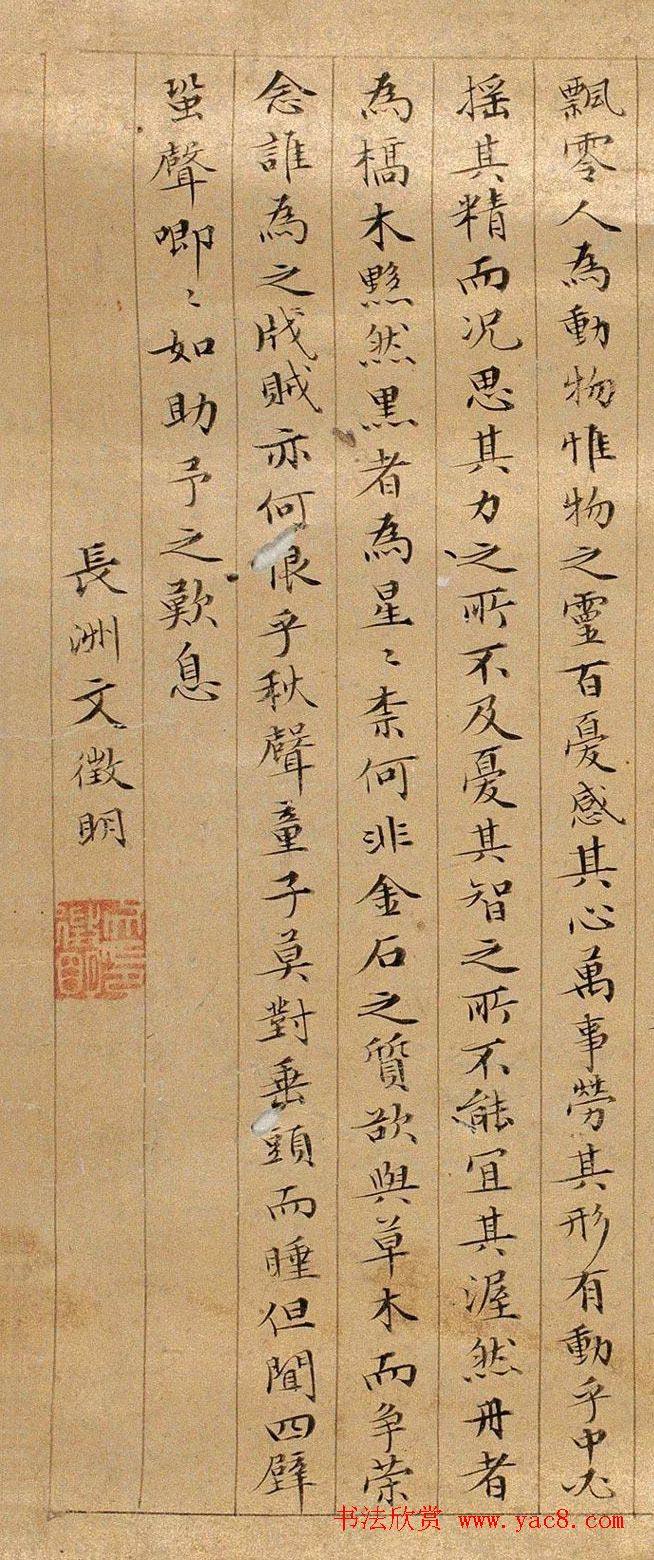 飄零人為動物惟物之靈百憂感其心萬事勞其形有動乎中必
摇其精而況思其力之所不及憂其智之所不能宜其渥然丹者
為槁木黟然黒者為星〻柰何非金石之質欲與草木而争荣
念誰為之戕賊亦何恨乎秋聲童子莫對垂頭而睡但聞四壁
蛩聲唧〻如助予之歎息
長洲文徵明
书法欣赏 www.yac8.com